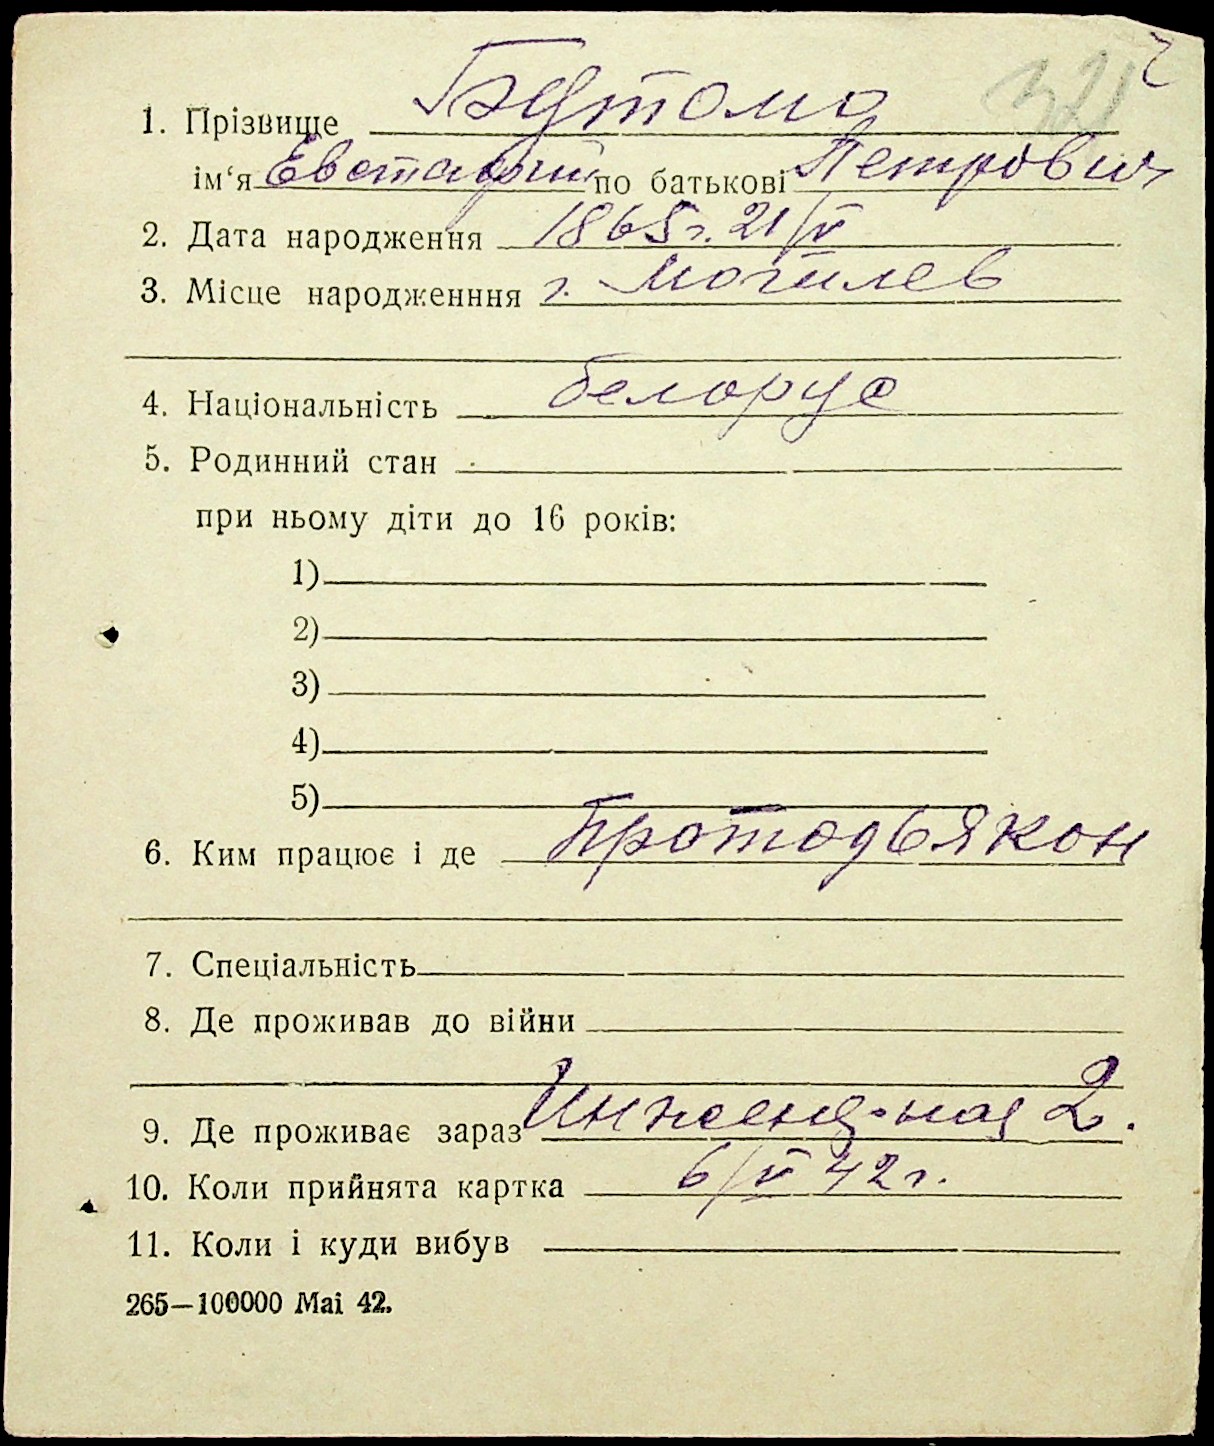 321
1. Прізвище Бядтома
ім‘я Евстафий по батькові Петрович
2. Дата народження 1865 г. 21/V
3. Місце народженння г. Могилев
4. Національність белорус
5. Родинний стан
при ньому діти до 16 років:
1)
2)
3)
4)
5)
6. Ким працює і де Протодьякон
7. Спеціальність
8. Де проживав до війни
9. Де проживає зараз 2.
10. Коли прийнята картка 6/V 42 г.
11. Коли і куди вибув
265—100000 Mai 42.